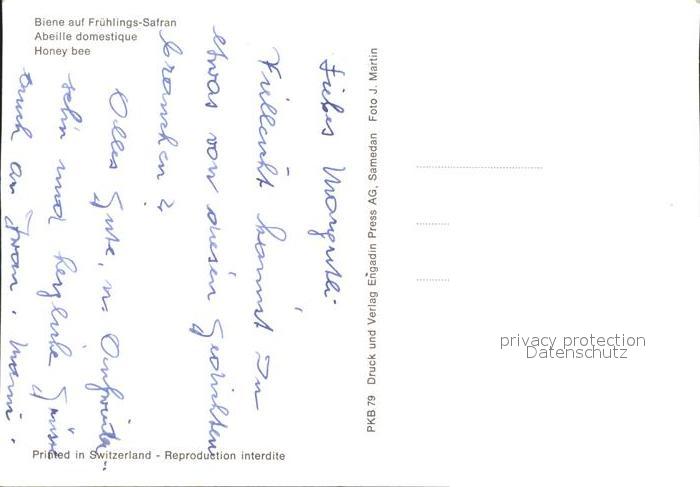 Biene auf Frühlings-Safran
Abeille domestique
Honey bee
Liebes Margritli
Vielleicht kannst Du
etwas von diesen Gedichten
brauchen?
Alles Gute, n:
sehn und herzliche Grüsse
auch an
Printed in Switzerland - Reproduction interdite
PKB 79 Druck und Verlag Engadin Press AG, Samedan Foto J. Martin
privacy protection
Datenschutz